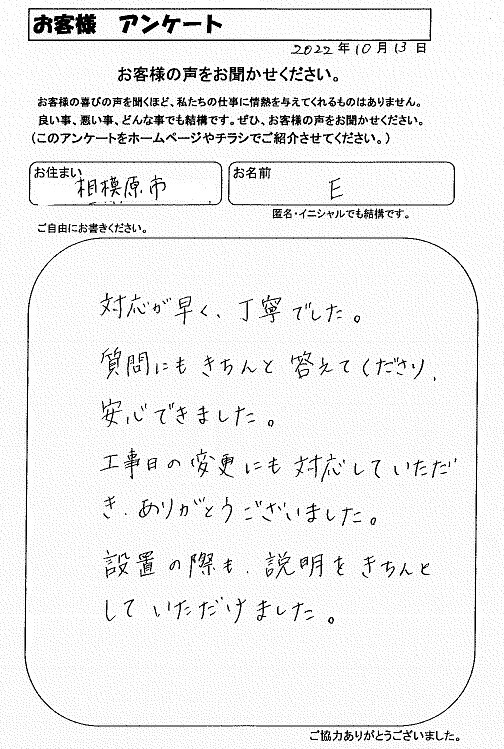 お客様 アンケート
2022年10月13日
お客様の声をお聞かせください。
お客様の喜びの声を聞くほど、私たちの仕事に情熱を与えてくれるものはありません。
良い事、悪い事、どんな事でも結構です。ぜひ、お客様の声をお聞かせください。
(このアンケートをホームページやチラシでご紹介させてください。)
お住まい 相模原市
お名前 E
匿名・イニシャルでも結構です。
ご自由にお書きください。
対応が早く、丁寧でした。
質問にもきちんと答えてくださり、
安心できました。
工事日の変更にも対応していただ
き、ありがとうございました。
設置の際も、説明をきちんと
していただけました。
ご協力ありがとうございました。